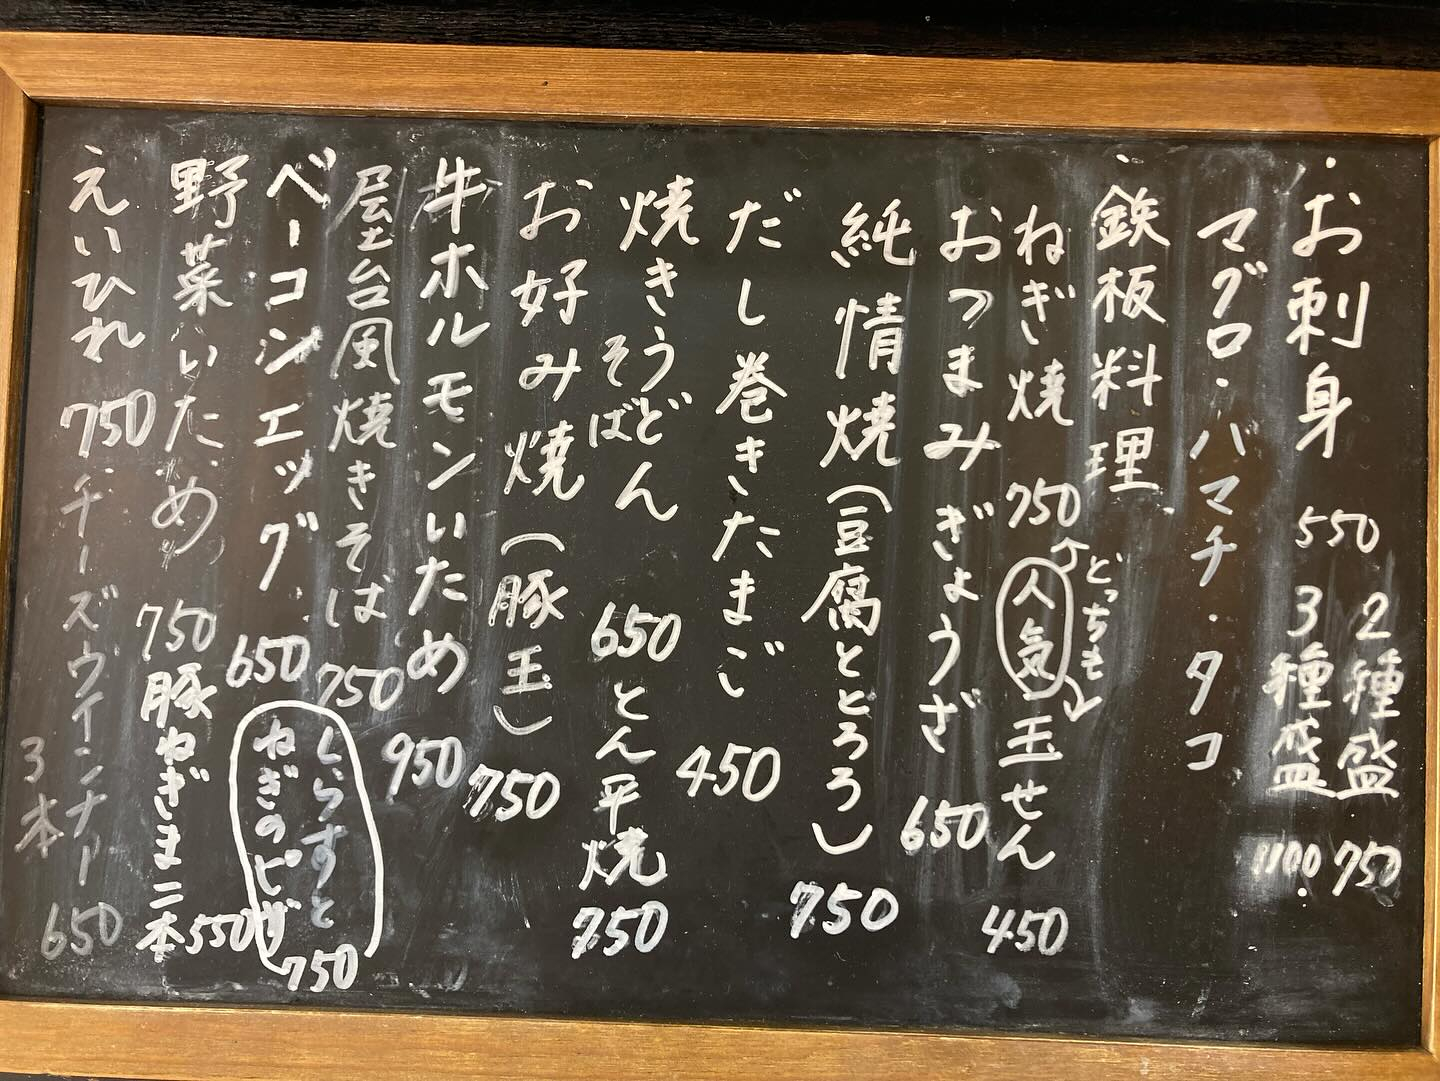 ・お刺身 550 2種盛 750
3種盛 1100.
マグロ・ハマチ・タコ
・鉄板料理
ねぎ焼 750 どっちも 人気 玉せん 450
おつまみぎょうざ 650
純情焼(豆腐ととろろ) 750
だし巻きたまご 450
焼きうどん 650 とん平焼 750
そば
お好み焼(豚玉) 750
牛ホルモンいため 950
屋台風焼きそば 750
ベーコンエッグ 650
しらすと
ねぎのピザ 750
野菜いため 750 豚ねぎま二本 550
えいひれ 750 チーズウインナー
3本 650